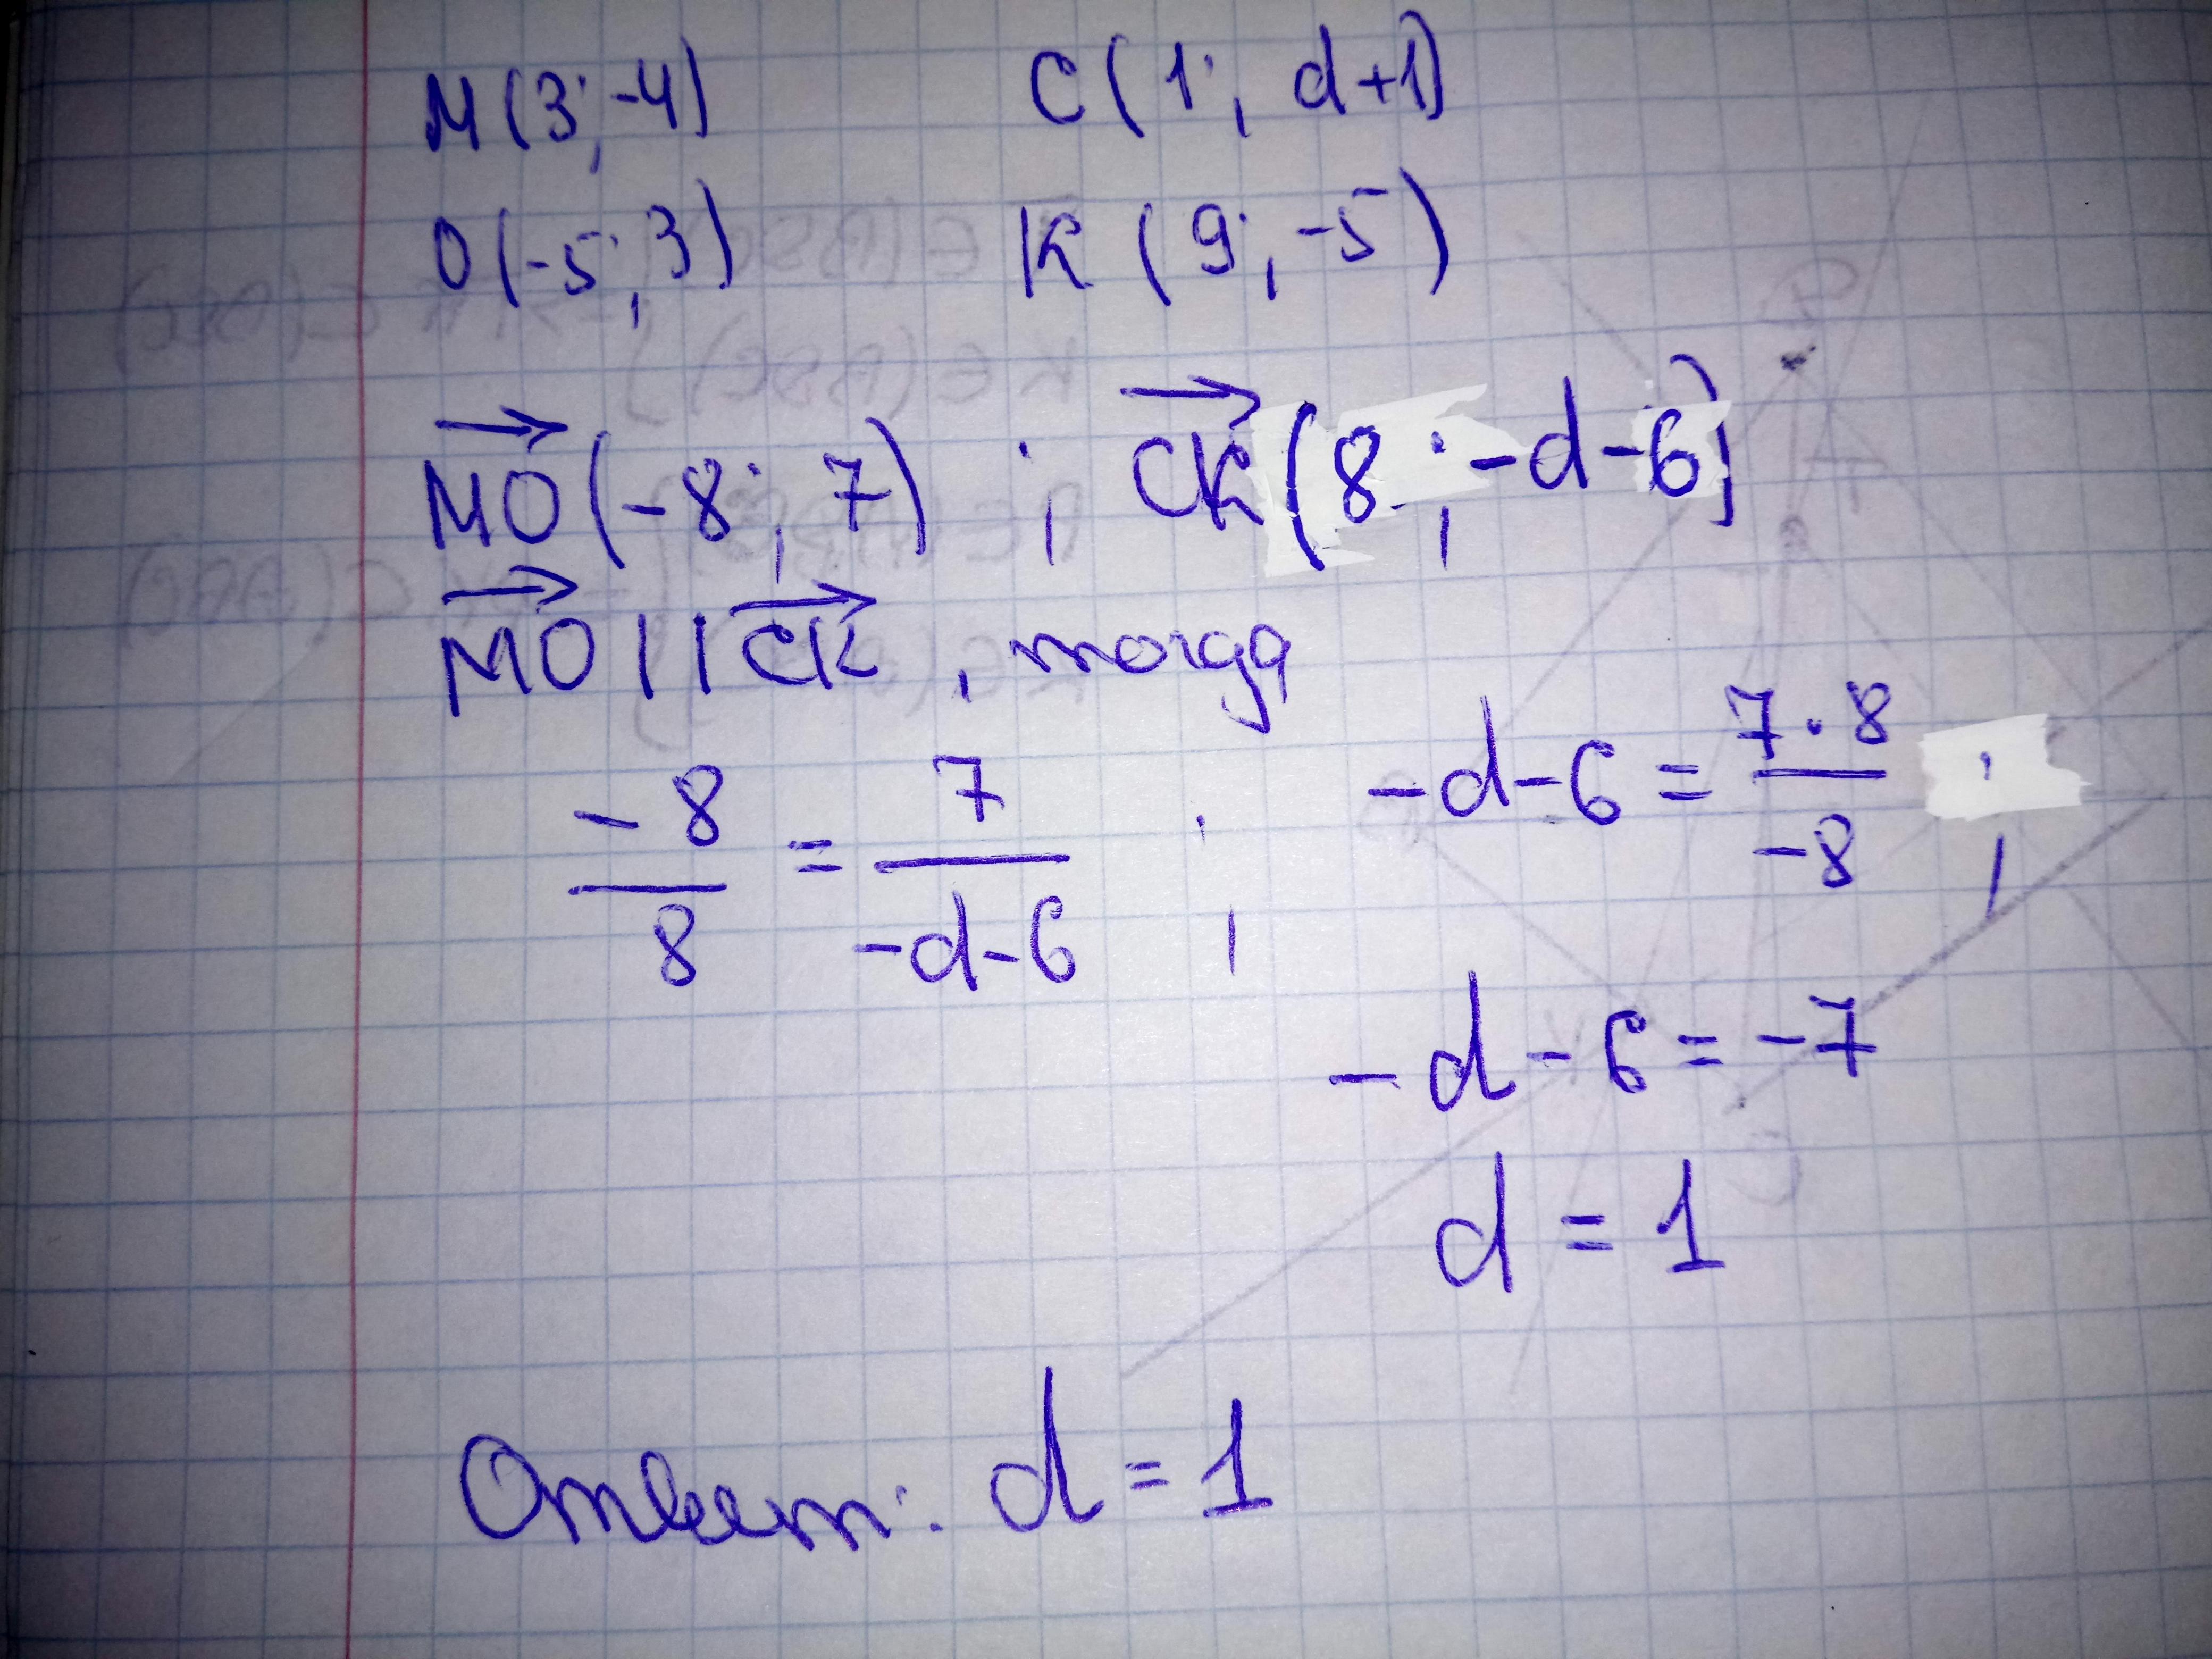 M(3;-4) C(1; d+1)
O(-5;3) K(9;-5)
MO(-8;7) ; CK(8;-d-6)
MO || CK, тогда
-8/8 = 7/-d-6 ; -d-6 = 7·8/-8 ;
-d-6=-7
d = 1
Ответ: d=1